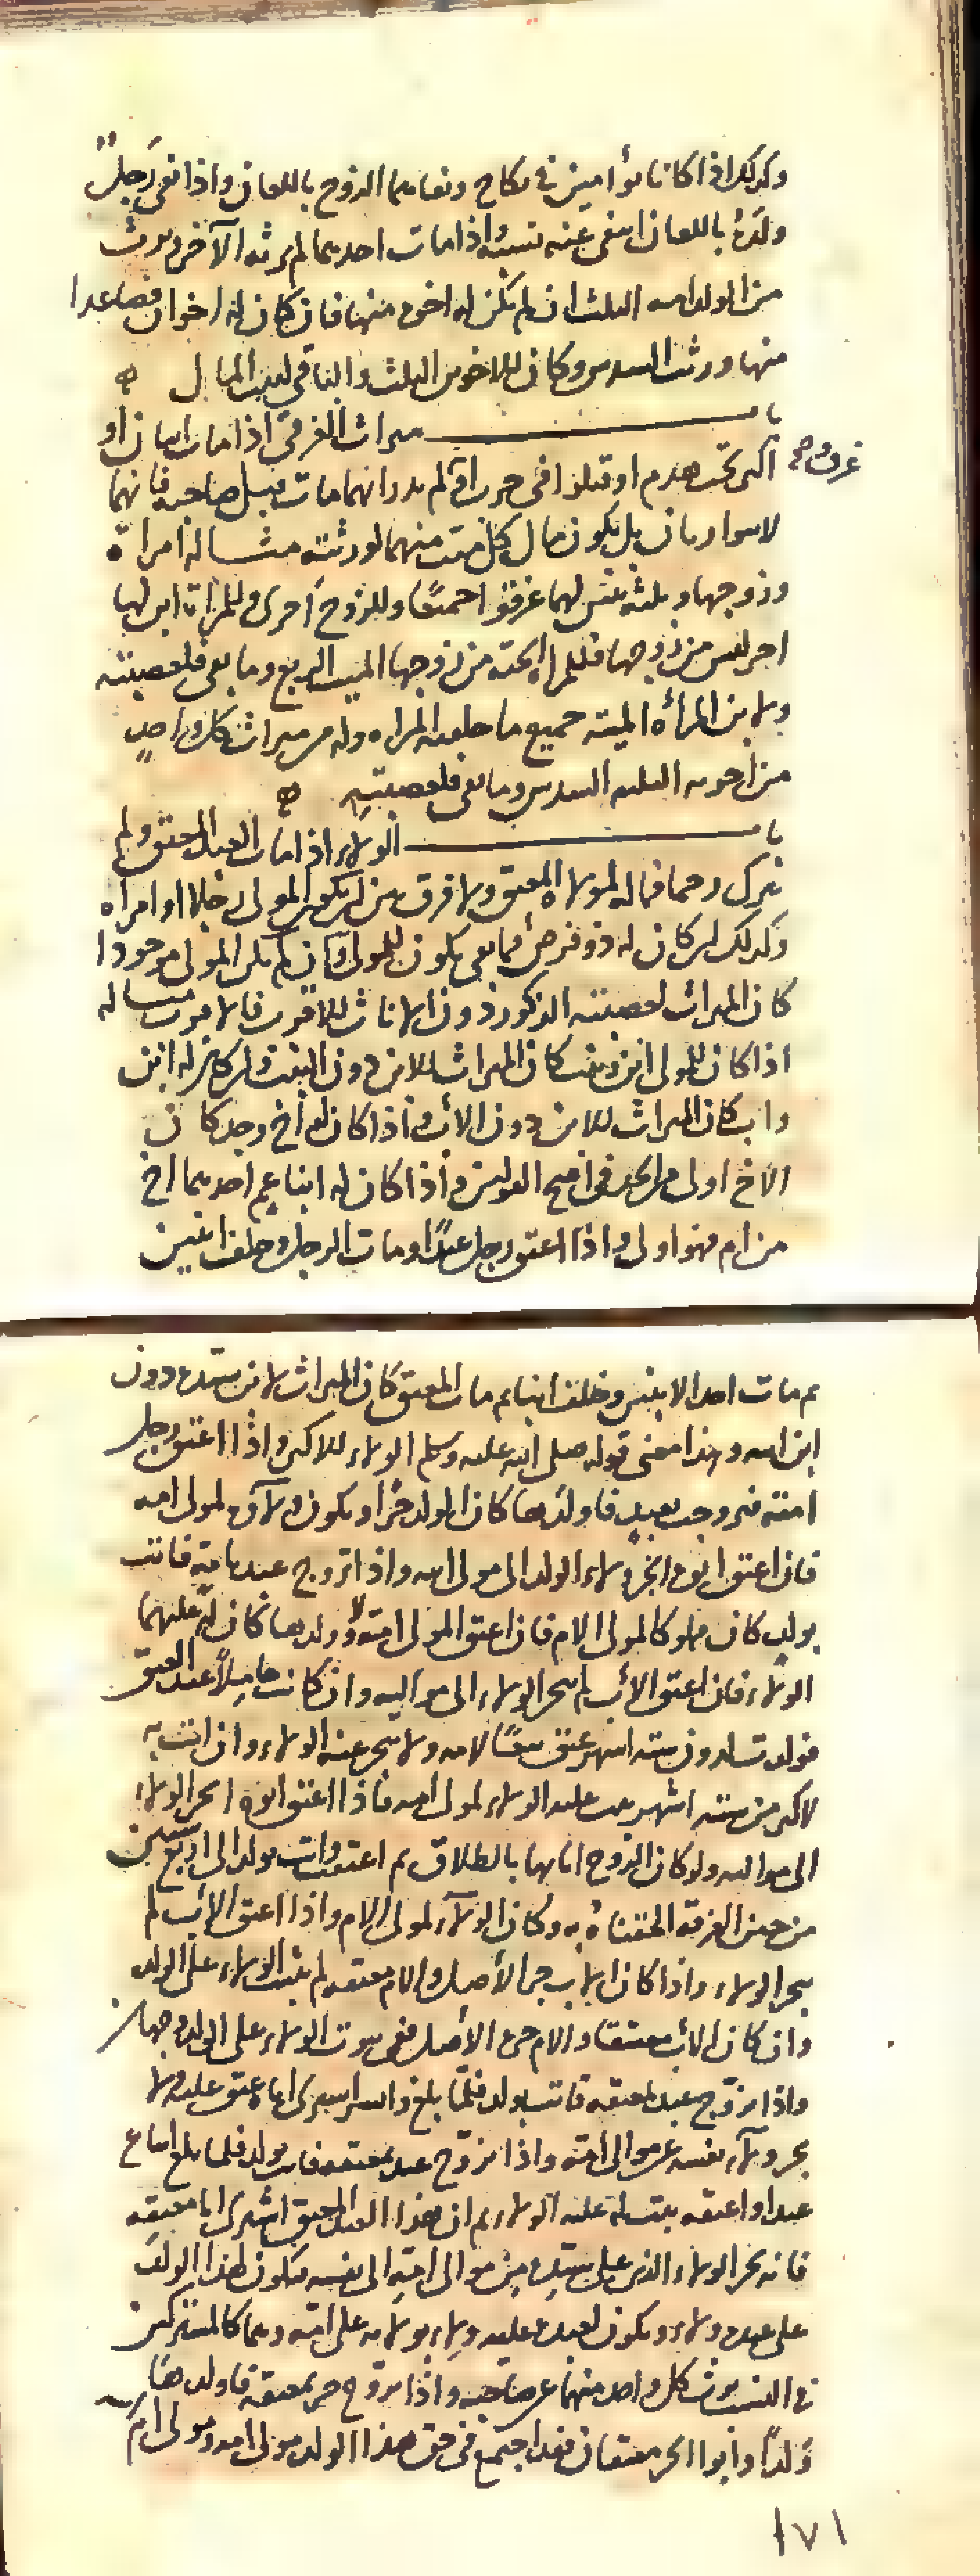 وكذلك اذا كانا توأمين في نكاح ونفاهما الزوج باللعان واذا نفى رجل
ولده باللعان انتفى عنه نسبه واذا مات احدهما لم يرثه الآخر ويرث
من الولد امه الثلث ان لم يكن له اخوة منها فان كان له اخوان فصاعدا
منها ورثت السدس وكان للاخوين الثلث والباقي لبيت المال
باب ميراث الغرقى اذا مات اثنان او
اكثر تحت هدم او قتلوا في حرب او لم يدر ايهما مات قبل صاحبه فانهما
غرق او صح
لا يتوارثان بل يكون مال كل ميت منهما لورثته مثاله امراة
وزوجها وثلثة بنين لهما غرقوا جميعًا وللزوج اخرى وللمراة ابن لها
اخر ليس من زوجها فللمراة الحية من زوجها الميت الربع وما بقي فلعصبته
ولابن المرأة الميتة جميع ما خلفته المراه وله من ميراث كل واحدٍ
من اخوته الثلثة السدس وما بقي فلعصبتهم
باب الولاء اذا مات العبد المعتق ولم
يترك رحما فماله لمولاه المعتق ولا فرق بين ان يكون المولى رجلا او امراه
وكذلك ان كان له ذو فرض فما بقي يكون للمولى وان لم يكن المولى موجودا
كان الميراث لعصبته الذكور دون الاناث للاقرب فالاقرب مثاله
اذا كان للمولى ابن وبنت كان الميراث للابن دون البنت وان كان له ابن
واب كان الميراث للابن دون الأب واذا كان له أخ وجد كان
الاخ اولى من الجد في اصح القولين واذا كان له ابنا عم احدهما اخ
من ام فهو اولى واذا اعتق رجل عبدًا ومات الرجل وخلف ابنين
ثم مات احد الابنين وخلف ابنا ثم مات المعتق كان الميراث لابن سيده دون
ابن ابنه وهذا معنى قوله صلى الله عليه وسلم الولاء للاكبر واذا اعتق رجل
امته فتزوجت بعبدٍ فاولدها كان الولد حرًا ويكون ولآؤه لمولى امه
فان اعتق ابوه انجر ولاء الولد الى مولى ابيه واذا تزوج عبد بامةٍ فاتت
بولدٍ كان مملوكا لمولى الام فان اعتق المولى امته وولدها كان له عليهما
الولاء فان اعتق الأب لم ينجر الولاء الى مواليه وان كانت حاملاً عند العتق
فولدت لدون ستة اشهر عتق تبعًا لامه ولا ينجر عنه الولاء وان اتت به
لاكثر من ستة اشهر ثبت عليه الولاء لمولى امه فاذا اعتق ابوه انجر الولاء
الى مواليه ولو كان الزوج ابانها بالطلاق ثم اعتقت واتت بولد الى اربع سنين
من حين الفرقة الحقناه به وكان الولآء لمولى الام واذا اعتق الأب لم
ينجر الولاء واذا كان الاب حر الأصل والام معتقه لم يثبت الولاء على الولد
وان كان الأب معتقا والام حرة الأصل ففي ثبوت الولاء على الولد وجهان
واذا تزوج عبد بمعتقه فاتت بولد فلما بلغ وايسر اشترى اباه عتق عليه ولا
يجر ولآء نفسه عن موالى امته واذا تزوج عبد بمعتقه فاتت بولد فلما بلغ ابتاع
عبدا واعتقه يثبت له عليه الولاء ثم ان هذا العبد المعتق اشترى ابا معتقه
فانه يجر الولاء الذي على سيده من موالى امه الى نفسه فيكون لهذا الولد
على عبده ولاء ويكون لعبده عليه ولاء بولائه على ابيه وهما كالمشتركين
في النسب يرث كل واحد منهما عن صاحبه واذا تزوج حر بمعتقه فاولدها
ولدًا وابوا الحر معتقان فقد اجتمع في حق هذا الولد مولى امه ومولى ام
١٧١